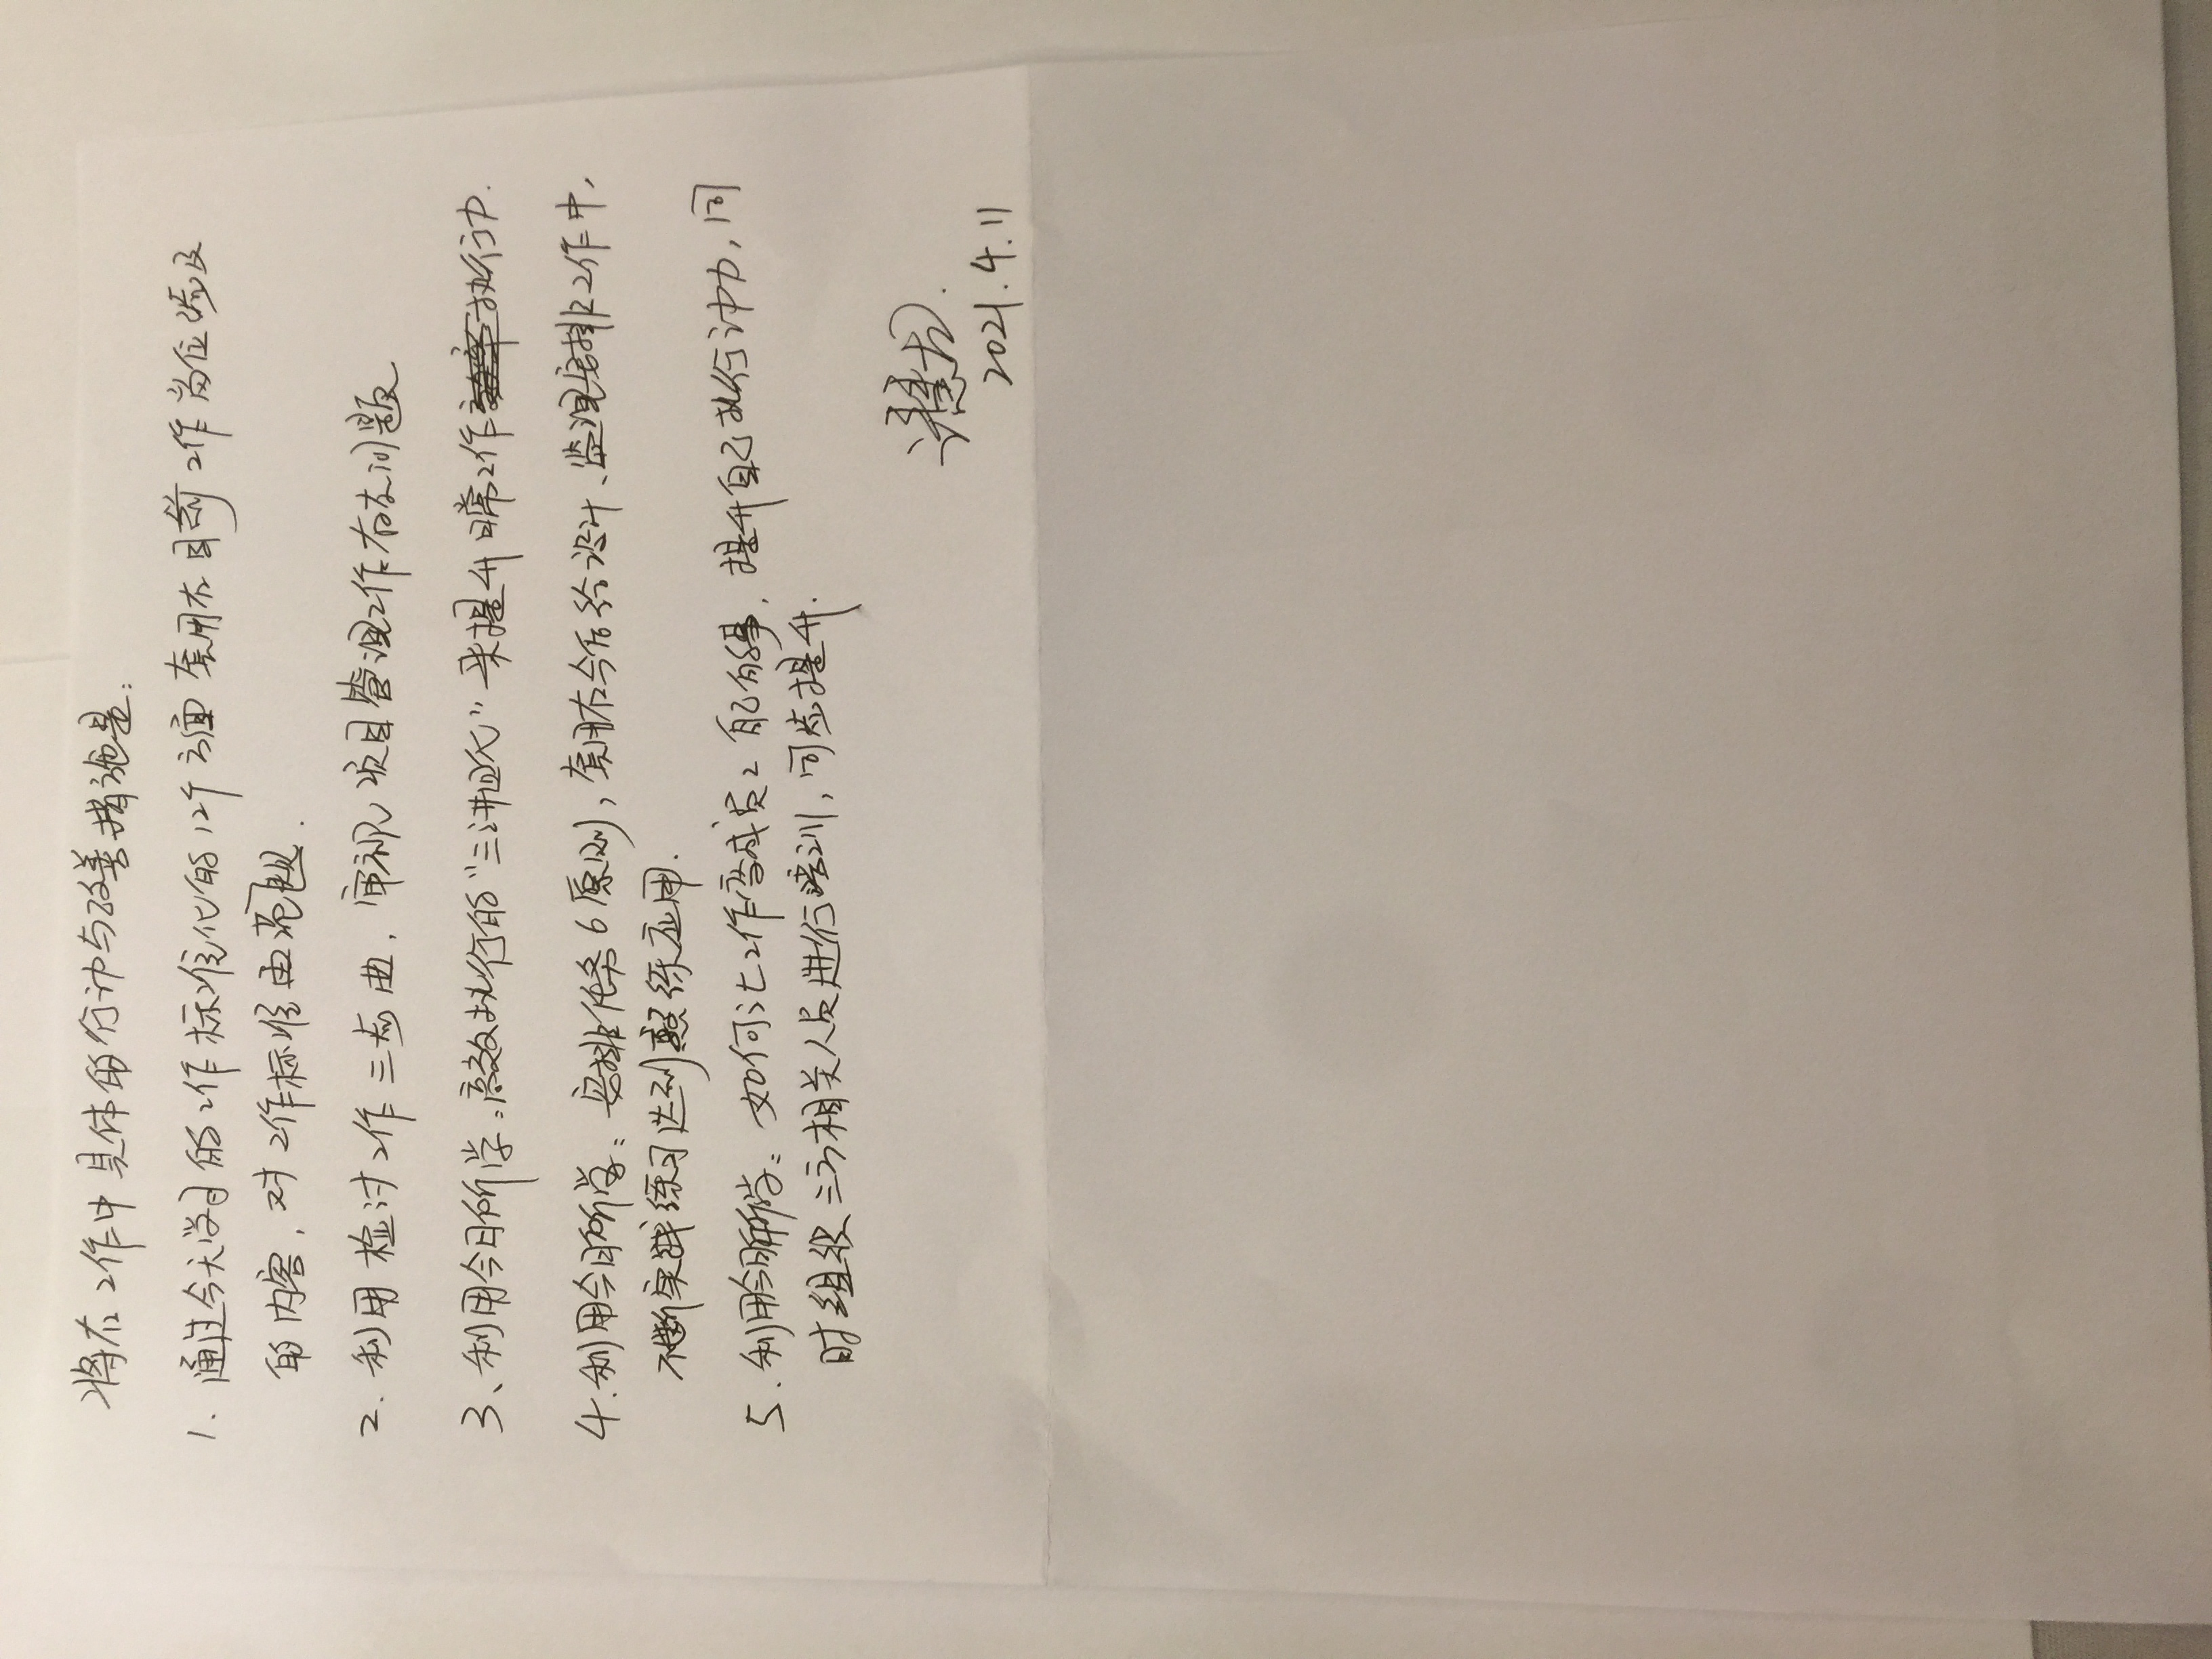 将在工作中具体的行动与改善措施是:
1. 通过今天学习的工作标准化的12个方面套用在目前工作岗位涉及
的内容,对工作标准由范围.
2. 利用检讨工作三步曲,审视项目管理工作存在问题
3、利用今日所学:高效执行的"三讲四化"来提升日常工作执行力.
4. 利用今日所学:安排任务6原则,套用在今后给设计、监理安排工作中,
不断实践练习达到熟练应用.
5. 利用今日所学:如何让工作变成员工自己的事,提升自己执行动力,同
时组织三方相关人员进行培训,同步提升.
2021.4.11